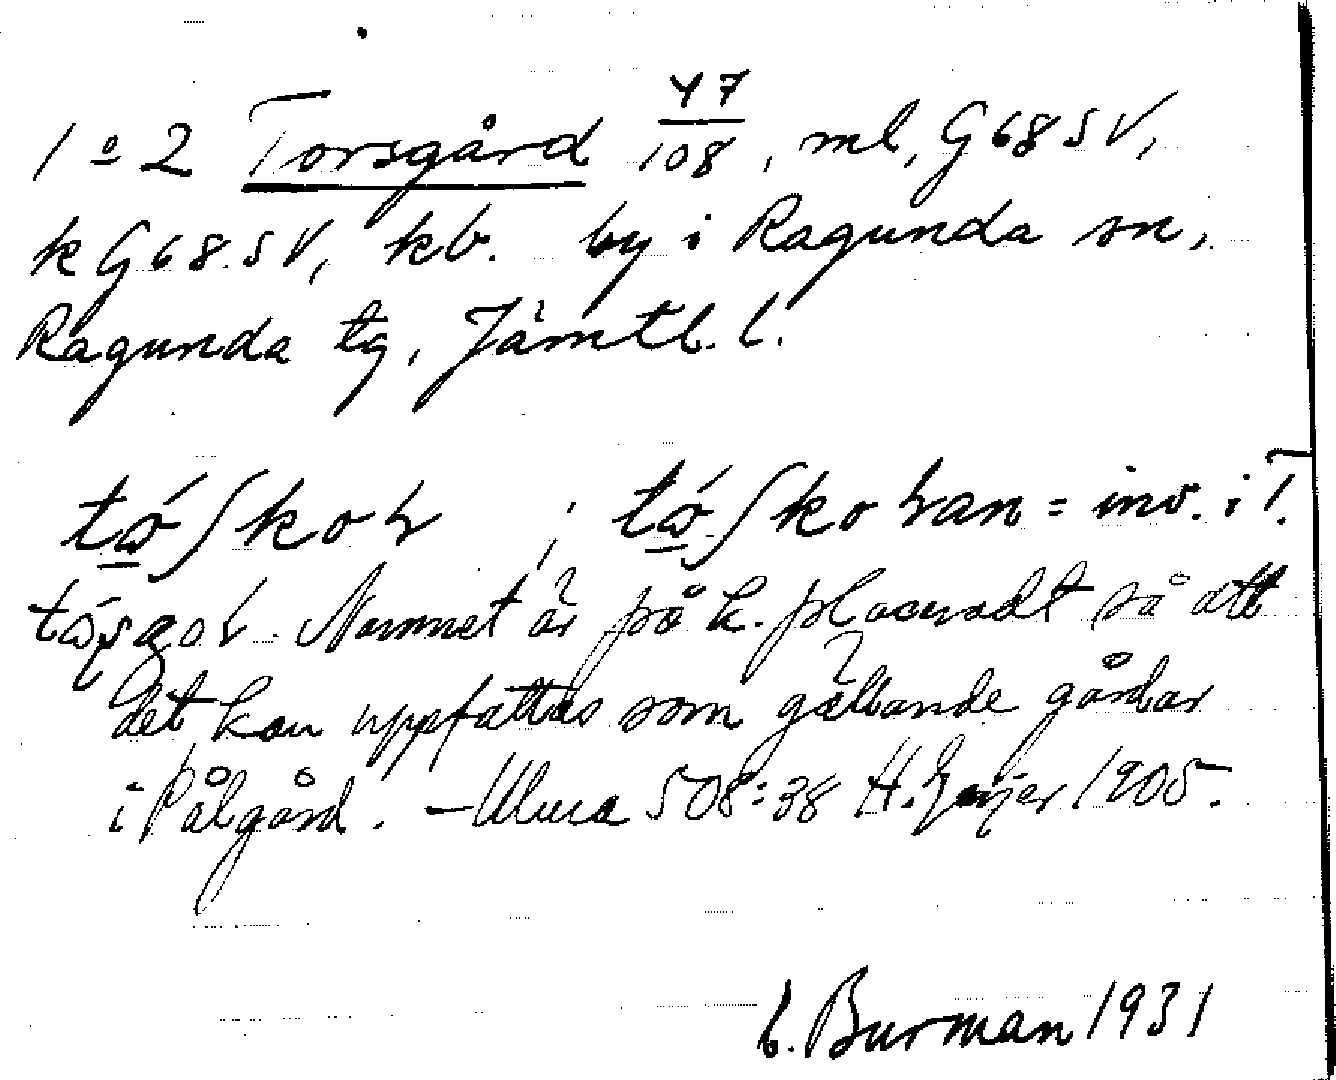 1 o 2 Torsgård 47/108, ml, G 68 SV,
k G 68 SV, kb. by i Ragunda sn,
Ragunda tg, Jämtl. l.
tɷ́ʃkoɿ ; tɷ́ʃkoɿan = inv. i T.
Namnet är på k. placeradt så att
det kan uppfattas som gällande gårdar
i Pålgård. – Uluca 508:38 H. Geijer 1905.
Burman 1931